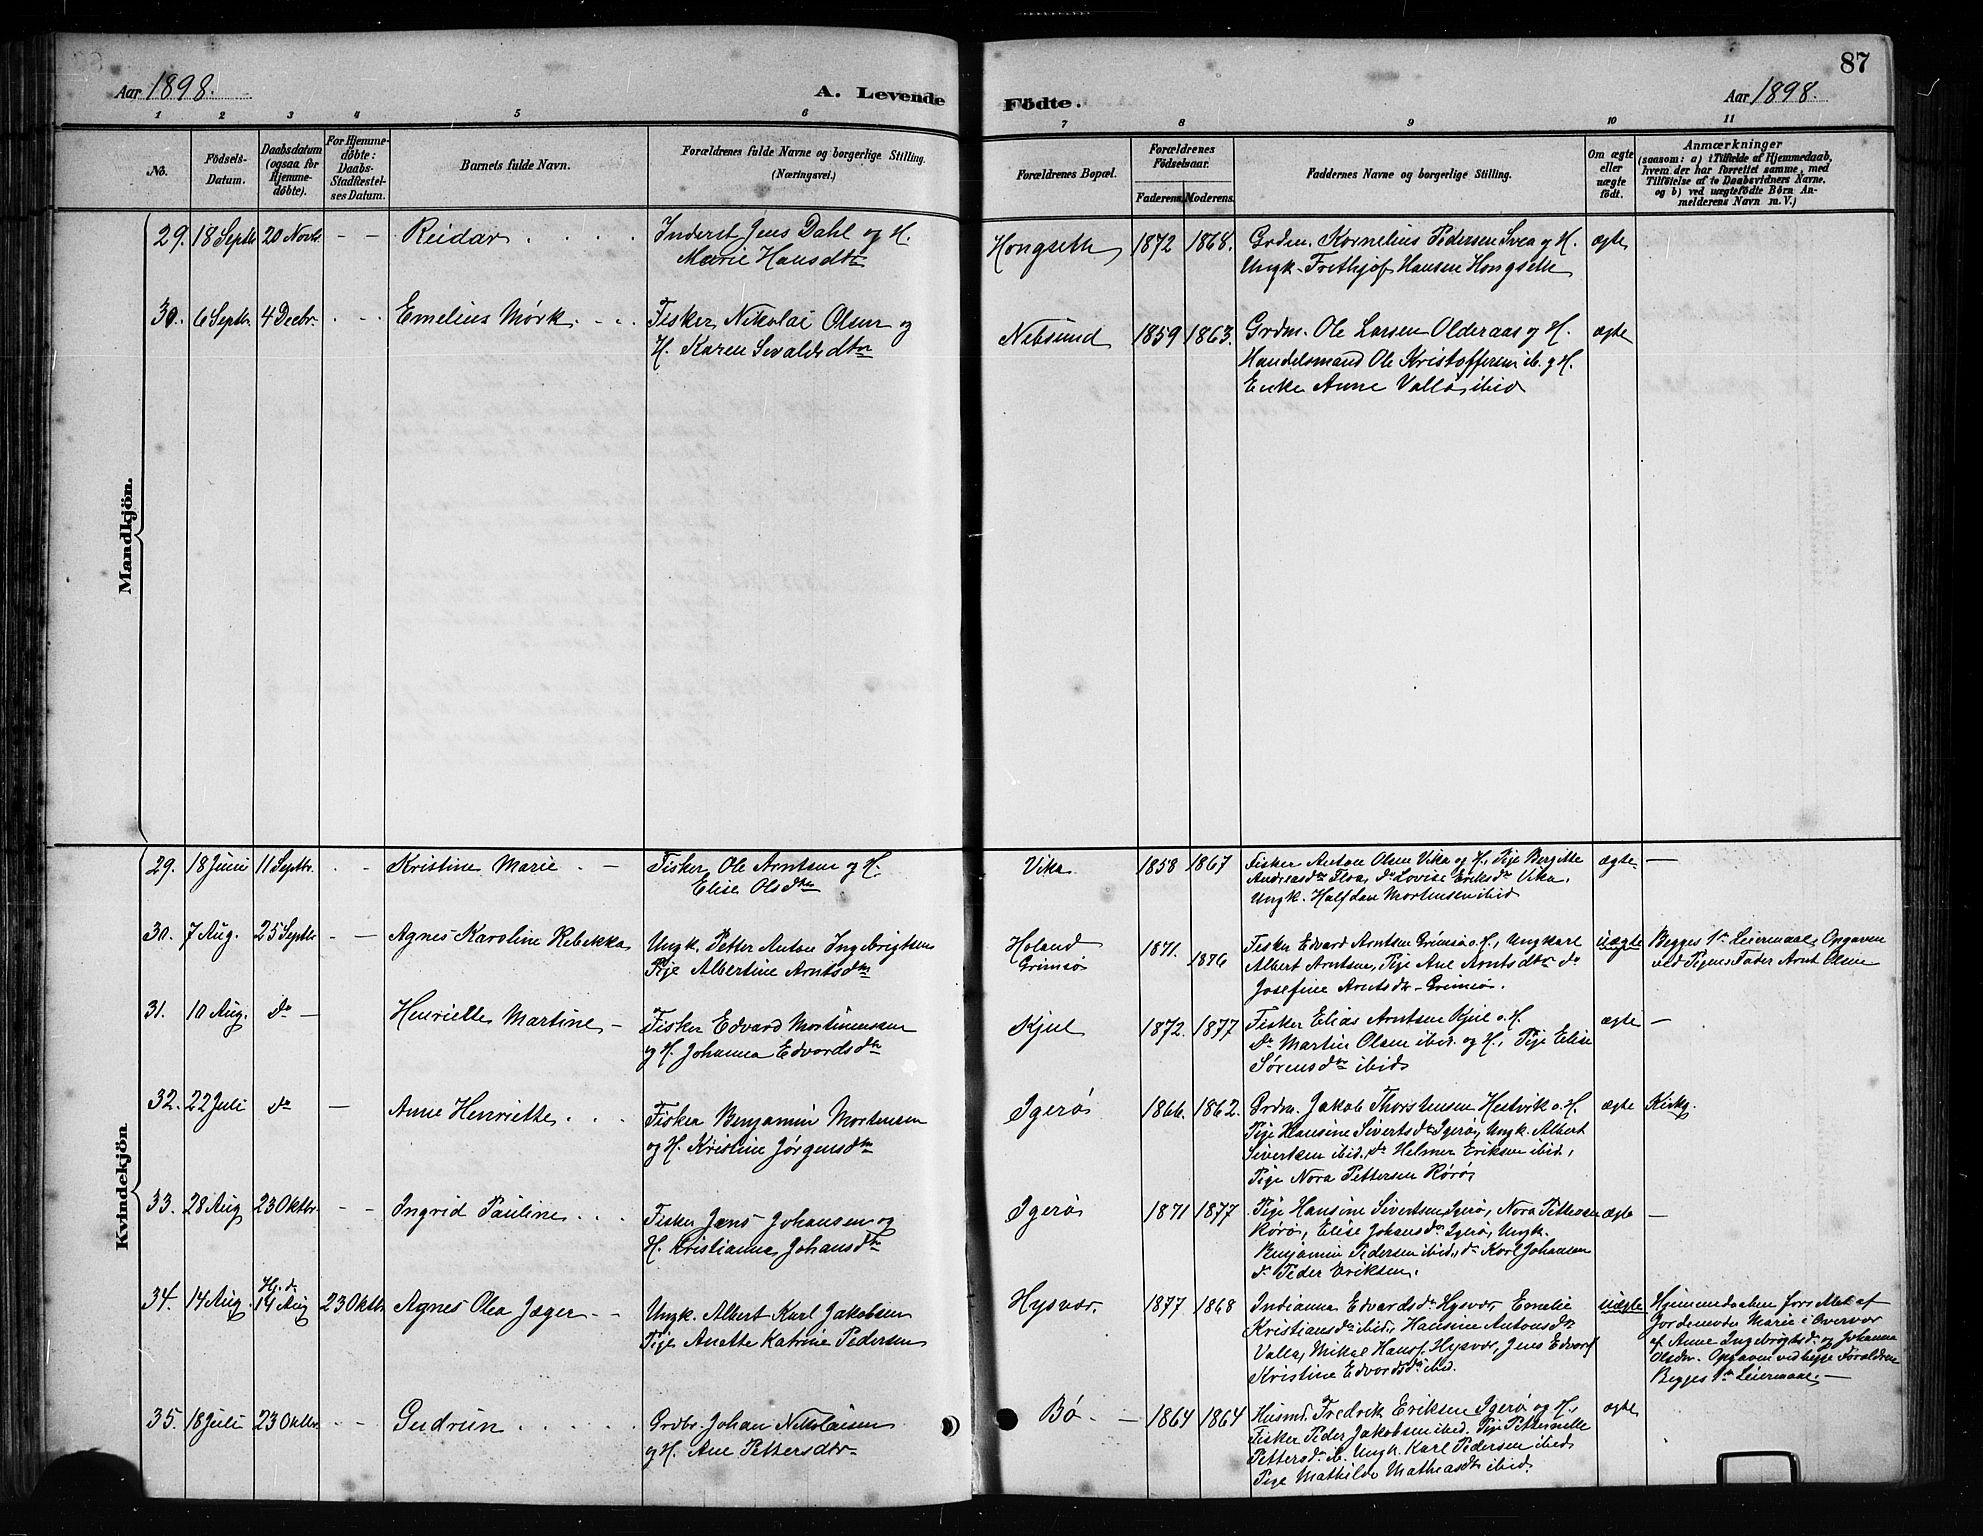 87
Aar 1898.
A. Levende
Födte.
Aar 1898.
1 2 3 4 5 6 7 8 9 10 11
No.
Födsels-
Datum.
Daabsdatum
(ogsaa for
Hjemme-
döbte).
For Hjemme-
döbte:
Daabs-
Stadfæstel-
ses Datum.
Barnets fulde Navn.
Forældrenes fulde Navne og borgerlige Stilling.
(Næringsvei.)
Forældrenes Bopæl.
Forældrenes
Födselsaar.
Faderens. Moderens.
Faddernes Navne og borgerlige Stilling.
Om ægte
eller
uægte
födt.
Anmærkninger
(saasom: a) i Tilfælde af Hjemmedaab,
hvem der har forrettet samme, med
Tilföielse af to Daabsvidners Navne,
og b) ved uægtefödte Börn An-
melderens Navn m. V.)
Mandkjön.
29. 18 Septbr 20 Novb. - - Reidar
Inderst Jens Dahl og H.
Marie Hansdtr
Hongseth 1872 1868.
Grdm. Kornelius Pedersen Svea og H.
Ungk. Frithjof Hansen Hongseth
ægte
30. 6 Septbr. 4 Decbr. - - Emelius Mörk
Fisker Nikolai Olsen og
H. Karen Sevaldsdtr
Nebsund 1859 1863.
Grdm. Ole Larsen Olderaas og H.
Handelsmand Ole Kristoffersen ib. og H.
Enke Anne Vallö, ibid
ægte
Kvindekjön.
29. 18 Juni 11 Septbr. - - Kristine Marie
Fisker Ole Arntsen og H.
Elise Olsdtr
Vika 1858 1867
Fisker Anton Olsen Vika og H., Pige Bergitte
Andreasdtr Floa, do Lovise Eriksdtr Vika,
Ungk. Halfdan Mortensen ibid
ægte —
30. 7 Aug. 25 Septbr - - Agnes Karoline Rebekka
Ungk. Petter Anton Ingebrigtsen
Pige Albertine Arntsdtr
Holand
Grimsö
1871. 1876
Fisker Edvard Arntsen Grimsö o. H., Ungkarl
Albert Arntsen, Pige Ane Arntsdtr do
Josefine Arntsdtr - Grimsö.
uægte
Begges 1ste Leiermaal. Opgaven
ved Pigens Fader Arnt Olsen
31. 10 Aug. do — Henriette Martine –
Fisker Edvard Mortinussen
og H. Johanna Edvardsdtr
Kjul 1872. 1877
Fisker Elias Arntsen Kjul o. H.
do Martin Olsen ibid. og H., Pige Elise
Sörensdtr ibid
ægte —
32. 22 Juli do — Anne Henriette
Fisker Benjamin Mortensen
og H. Kristine Jörgensdtr
Igerö 1866. 1862.
Grdm. Jakob Thorstensen Hestvik o. H.
Pige Hansine Sivertsdtr Igerö, Ungk. Albert
Sivertsen ibid., do Helmer Eriksen ibid,
Pige Nora Pettersen Rörö
ægte Kirkg.
33. 28 Aug 23 Oktbr. - - Ingrid Pauline
Fisker Jens Johansen og
H. Kristianna Johansdtr
Igerö 1871 1877
Pige Hansine Sivertsen Igerö, Nora Pettersen
Rörö, Elise Johansdtr Igerö, Ungk.
Benjamin Pedersen ibid, do Karl Johansen
do Peder Eriksen.
ægte —
34. 14 Aug. Hj. d.
14 Aug 23 Oktbr. Agnes Olea Jæger
Ungk. Albert Karl Jakobsen
Pige Anette Katrine Pedersen
Hysvær. 1877 1868
Indianna Edvardsdtr Hysvær, Emelie
Kristiansdtr ibid, Hansine Antonsdtr
Valla, Mikal Hansf. Hysvær, Jens Edvardf.
Kristine Edvardsdtr ibid.
uægte
Hjemmedaaben forrettet af
Jordemoder Marie i Overvær
af Anne Ingebrigtsdtr og Johanna
Olsdtr. Opgaven ved begge Forældrene
Begges 1ste Leiermaal. —
35. 18 Juli 23 Oktbr - - Gudrun
Grdbr. Johan Nikolaisen
og H. Ane Pettersdtr
Bö. — 1864 1864
Husmd. Fredrik Eriksen Igerö og H.,
Fisker Peder Jakobsen ibid. Pige Petternelle
Pettersdtr ib. Ungk. Karl Pedersen ibid.
Pige Mathilde Matheasdtr ibid.
ægte